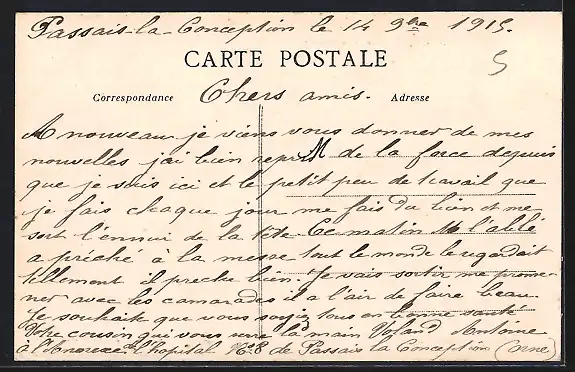 Passais-la-Conception le 14 9bre 1915.
CARTE POSTALE
5
Correspondance Chers amis. Adresse
A nouveau je viens vous donner de mes
nouvelles j'ai bien repris de la force depuis
que je suis ici et le petit peu de travail que
je fais chaque jour me fais du bien et me
sort l'ennui de la tête. Ce matin M l'abbé
a prêché à la messe tout le monde le regardait
tellement il preche bien. Je vais sortir me prome-
ner avec les camarades il a l'air de faire beau.
Je souhaite que vous soyez tous en bonne santé
Votre cousin qui vous serre la main Voland Antoine
à l'Annexe de l'hopital de Passais la Conception (Orne)